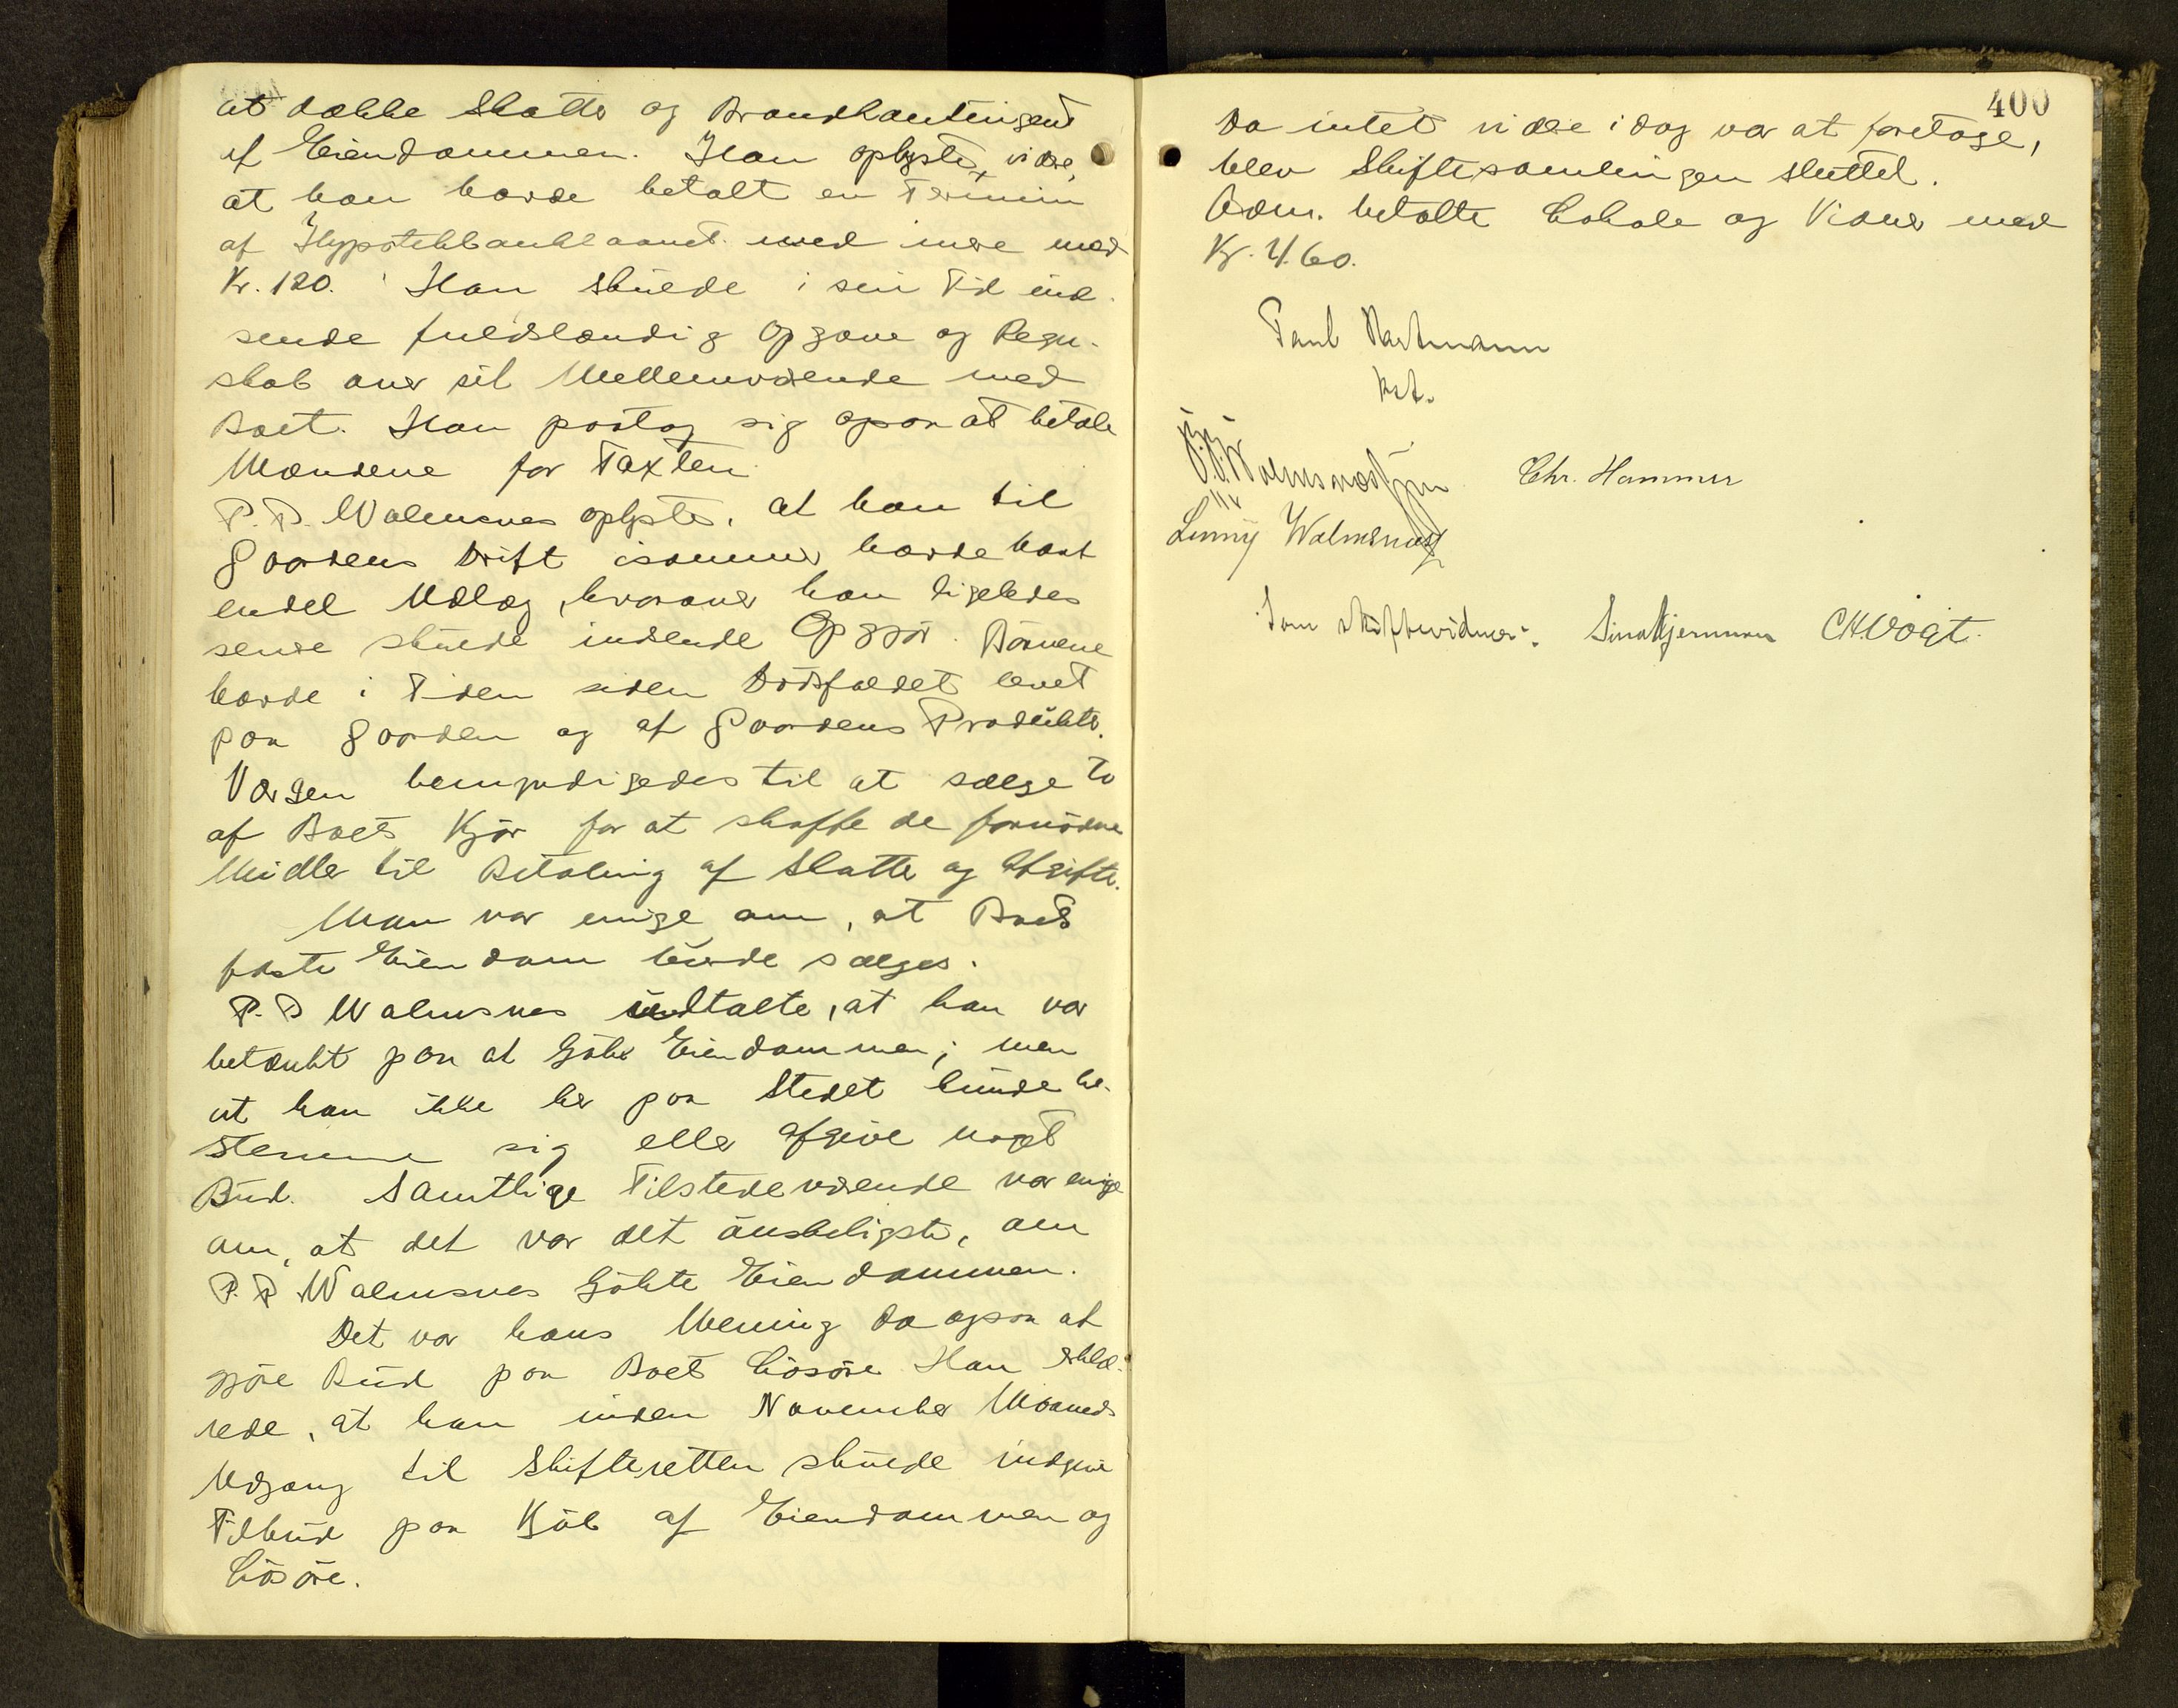 at dække Skatte og Brandkontingent
af Eiendommen. Han oplyste, vidre,
at han havde betalt en Termin
af Hypothekbanklaanet med mere med
Kr. 120. Han skulde i sin Tid ind-
sende fuldstændig Opgave og Regn-
skab over sit Mellemværende med
Boet. Han paatog sig ogsaa at betale
Mændene for Taxten.
P. P. Walmsnes oplyste, at han til
Gaardens Drift isommer havde havt
endel Udlæg, hvorover han ligeledes
senere skulde indsende Opgjør. Børnene
havde i Tiden siden Dødsfaldet levet
paa Gaarden og af Gaardens Produkte.
Værgen bemyndigedes til at sælge to
af Boets Kjør for at skaffe de fornødne
Midler til Betaling af Skatte og Afgifte.
Man var enige om, at Boets
faste Eiendom burde sælges.
P. P Walmsnes udtalte, at han var
betænkt paa at kjøbe Eiendommen; men
at han ikke her paa Stedet kunde be-
stemme sig eller afgive noget
Bud. Samtlige Tilstedeværende var enige
om, at det var det ønskeligste, om
P. P. Walmsnes kjøbte Eiendommen.
Det var hans Mening da ogsaa at
gjøre Bud paa Boets Løsøre. Han erklæ-
rede, at han inden November Maaneds
Udgang til Skifteretten skulde indgive
Tilbud paa Kjøb af Eiendommen og
Løsøre.
400
Da intet vidre i dag var at foretage,
blev Skiftesamlingen sluttet.
Adm. betalte Lokale og Vidner med
Kr. 4.60.
Paul Hartmann
kst.
Walmsnæs Chr. Hammer
Linny Walmsnæs
Som skiftevidner: CH. Vogt.